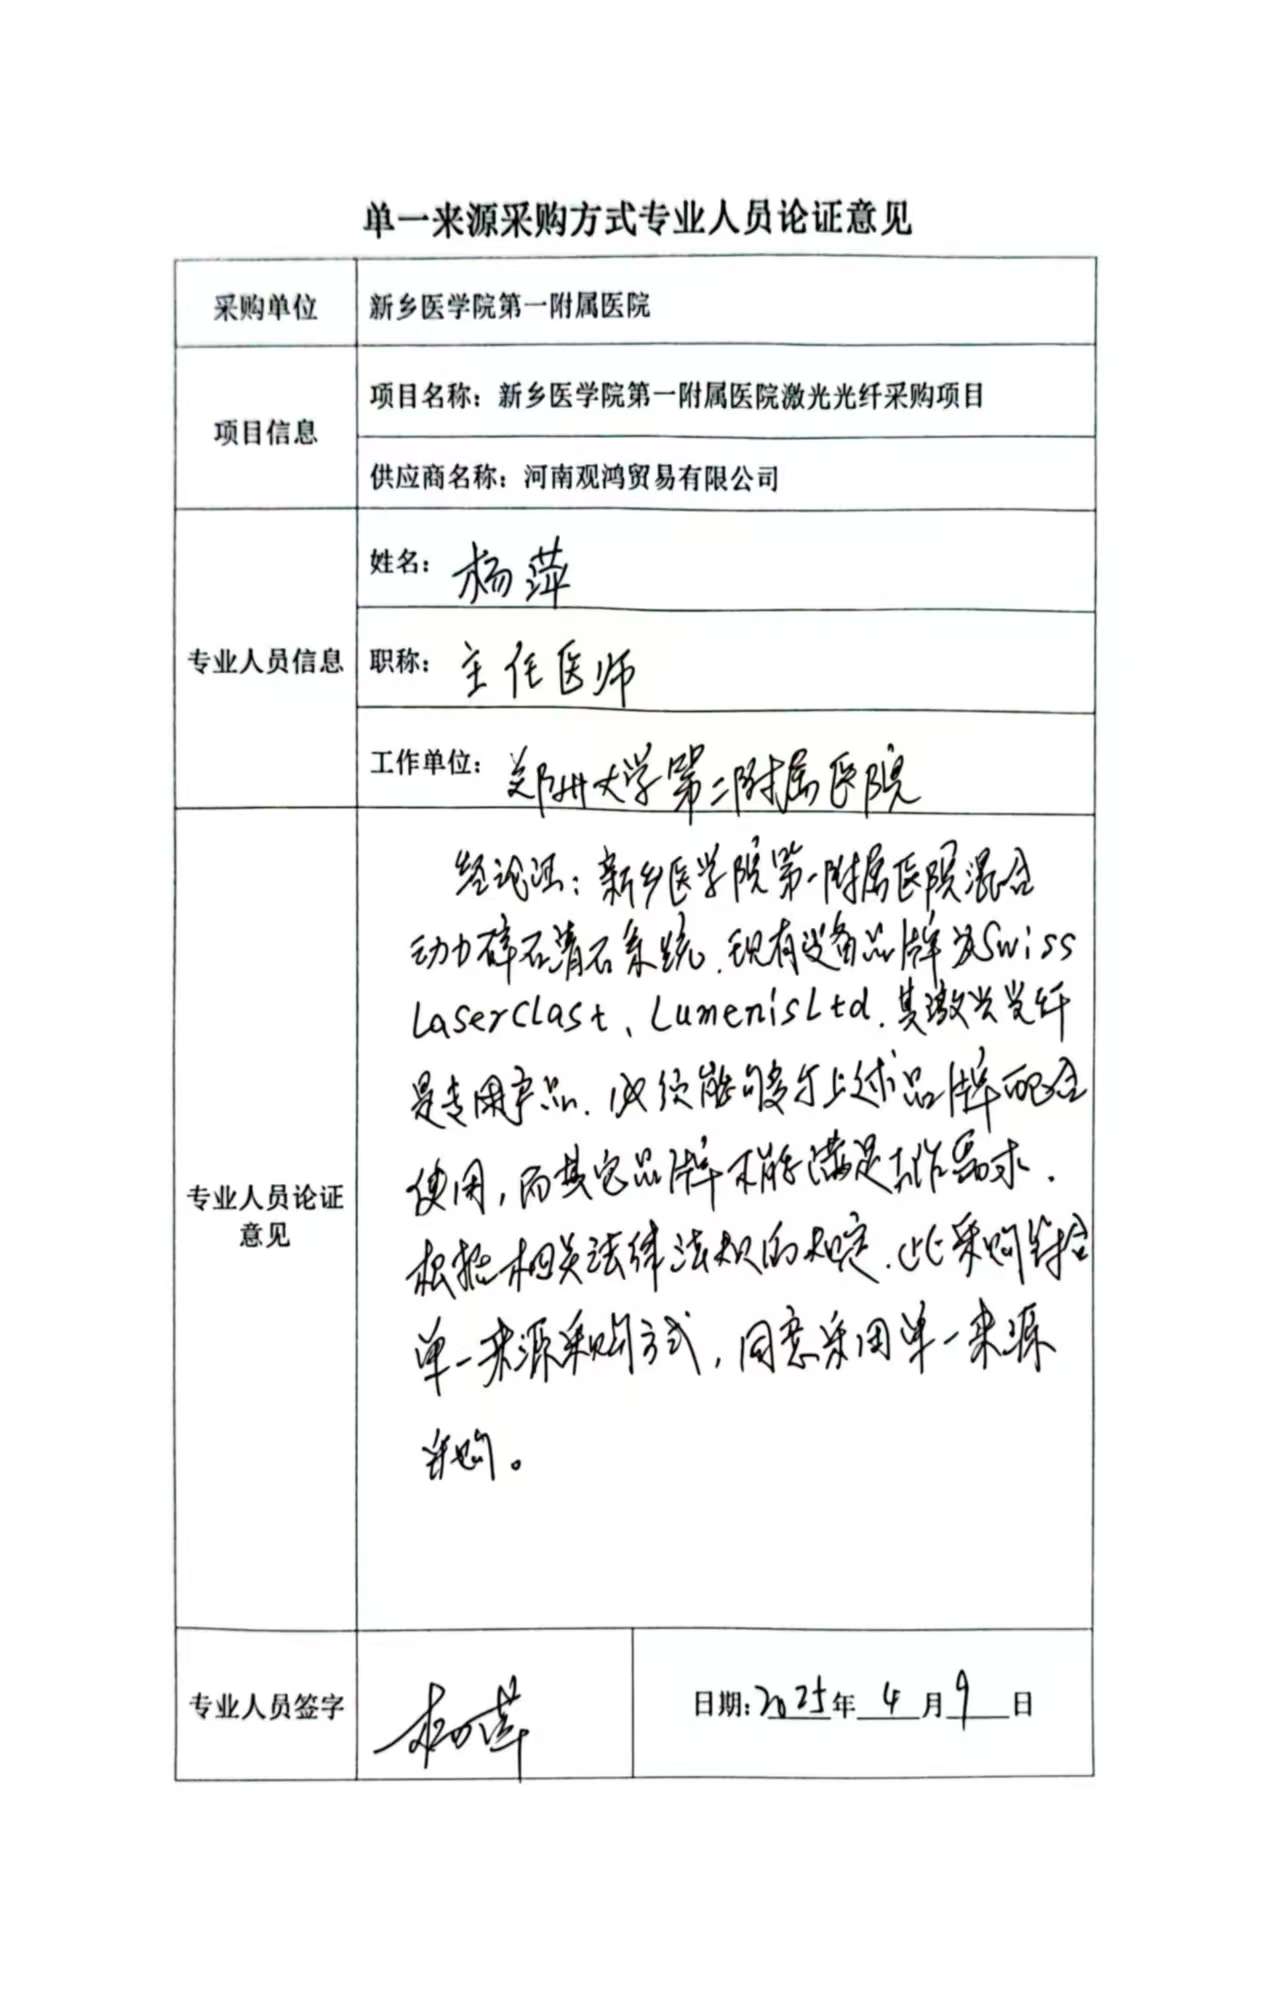 单一来源采购方式专业人员论证意见
采购单位
新乡医学院第一附属医院
项目信息
项目名称：新乡医学院第一附属医院激光光纤采购项目
供应商名称：河南观鸿贸易有限公司
专业人员信息
姓名：杨萍
职称：主任医师
工作单位：郑州大学第二附属医院
专业人员论证
意见
经论证：新乡医学院第一附属医院混合
动力碎石清石系统，现有设备品牌为Swiss
LaserClast、LumenisLtd，其激光光纤
是专用产品，必须能够与上述品牌配合
使用，而其它品牌不能满足工作需求．
根据相关法律法规的规定，此采购符合
单一来源采购方式，同意采用单一来源
采购。
专业人员签字
杨萍
日期：2025年4月9日